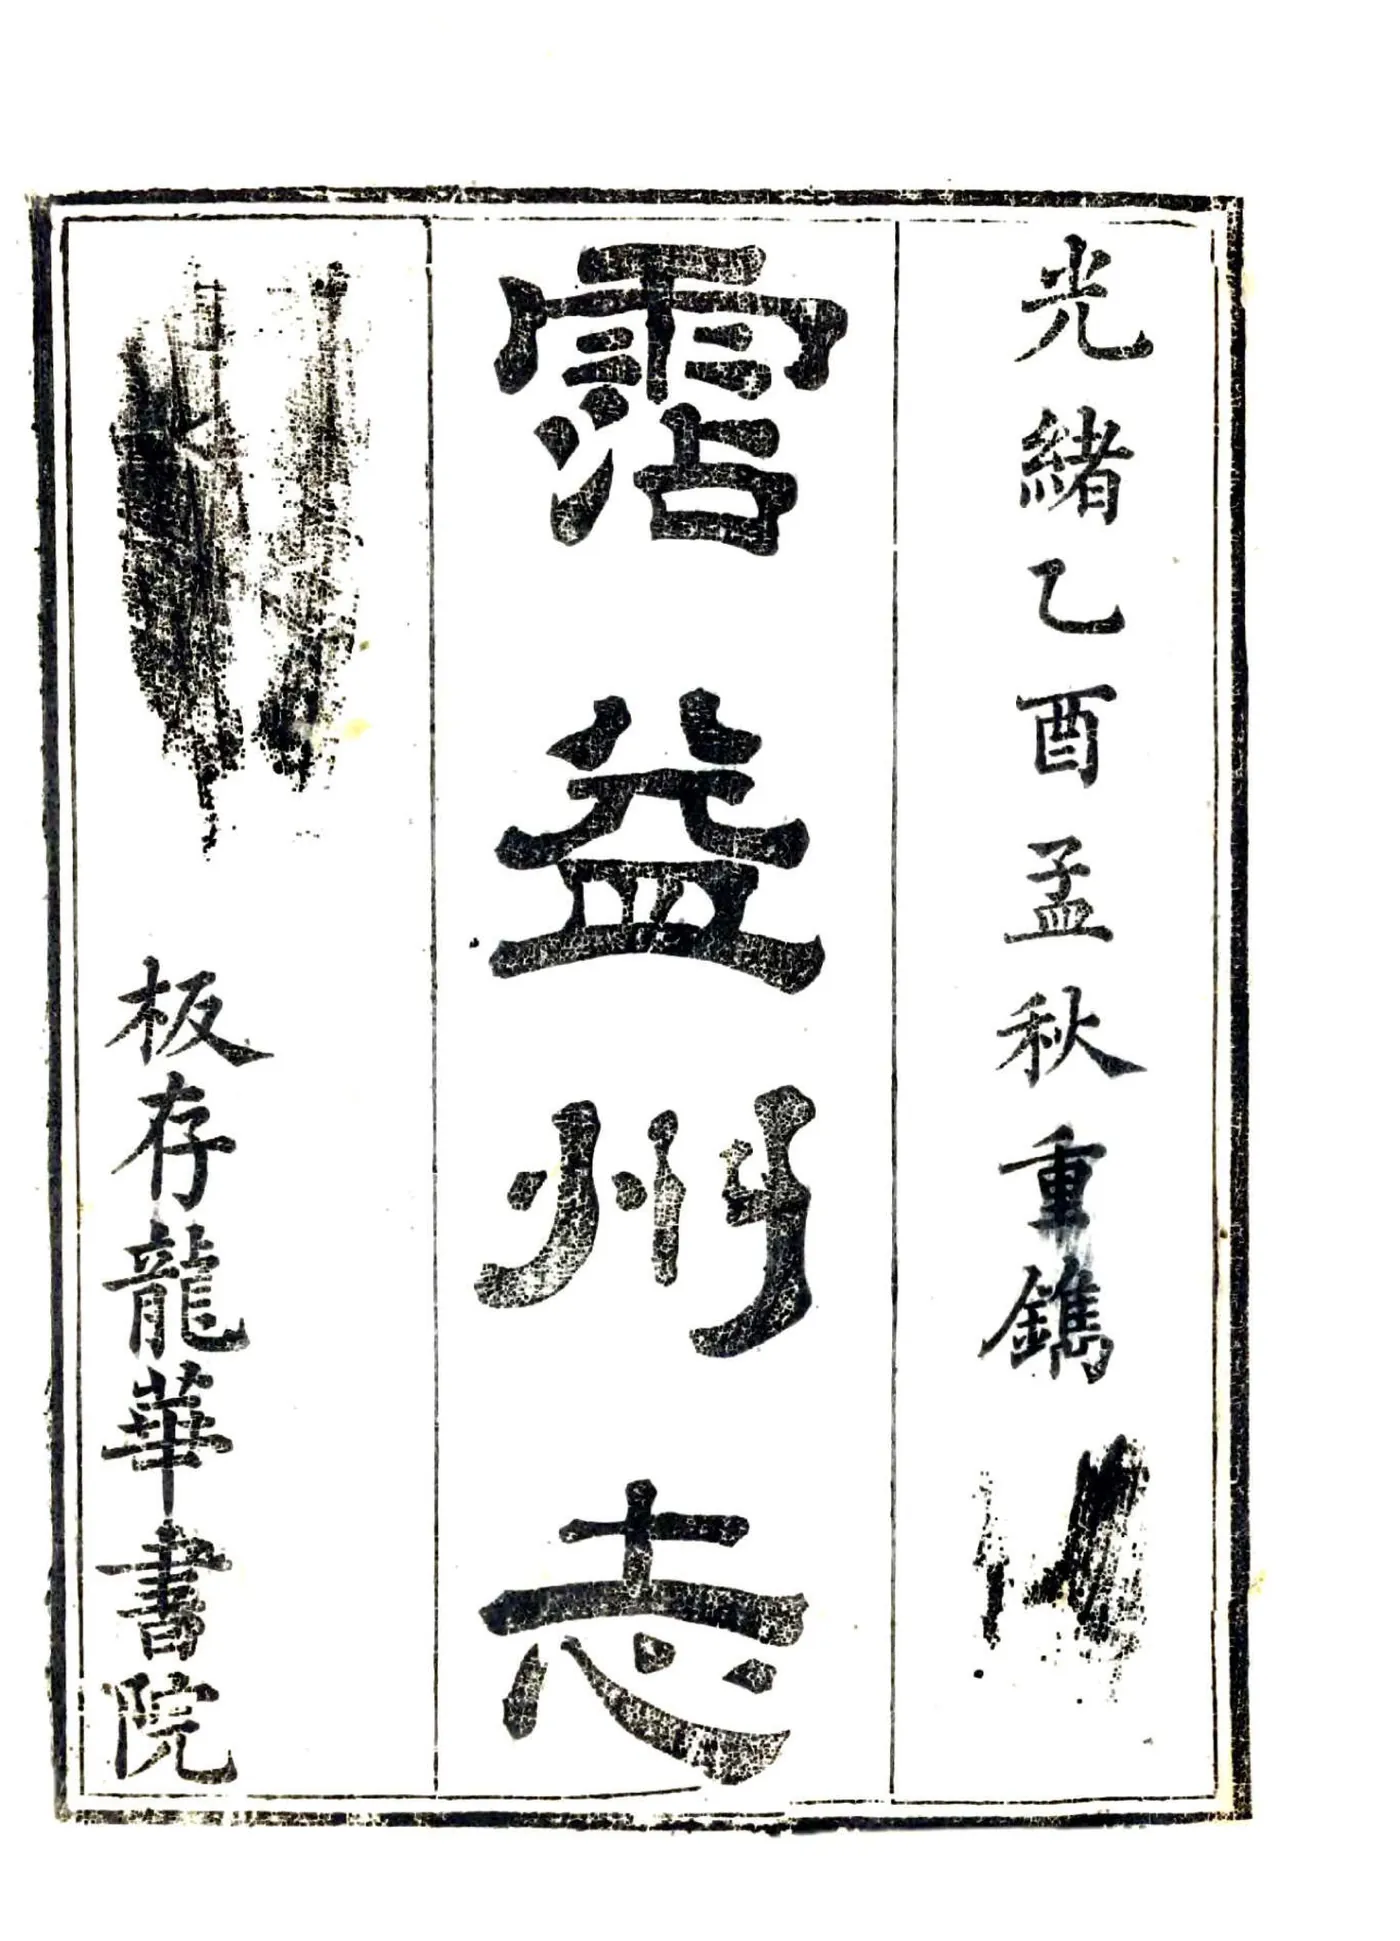 光緒乙酉孟秋重鐫
霑益州志
板存龍華書院